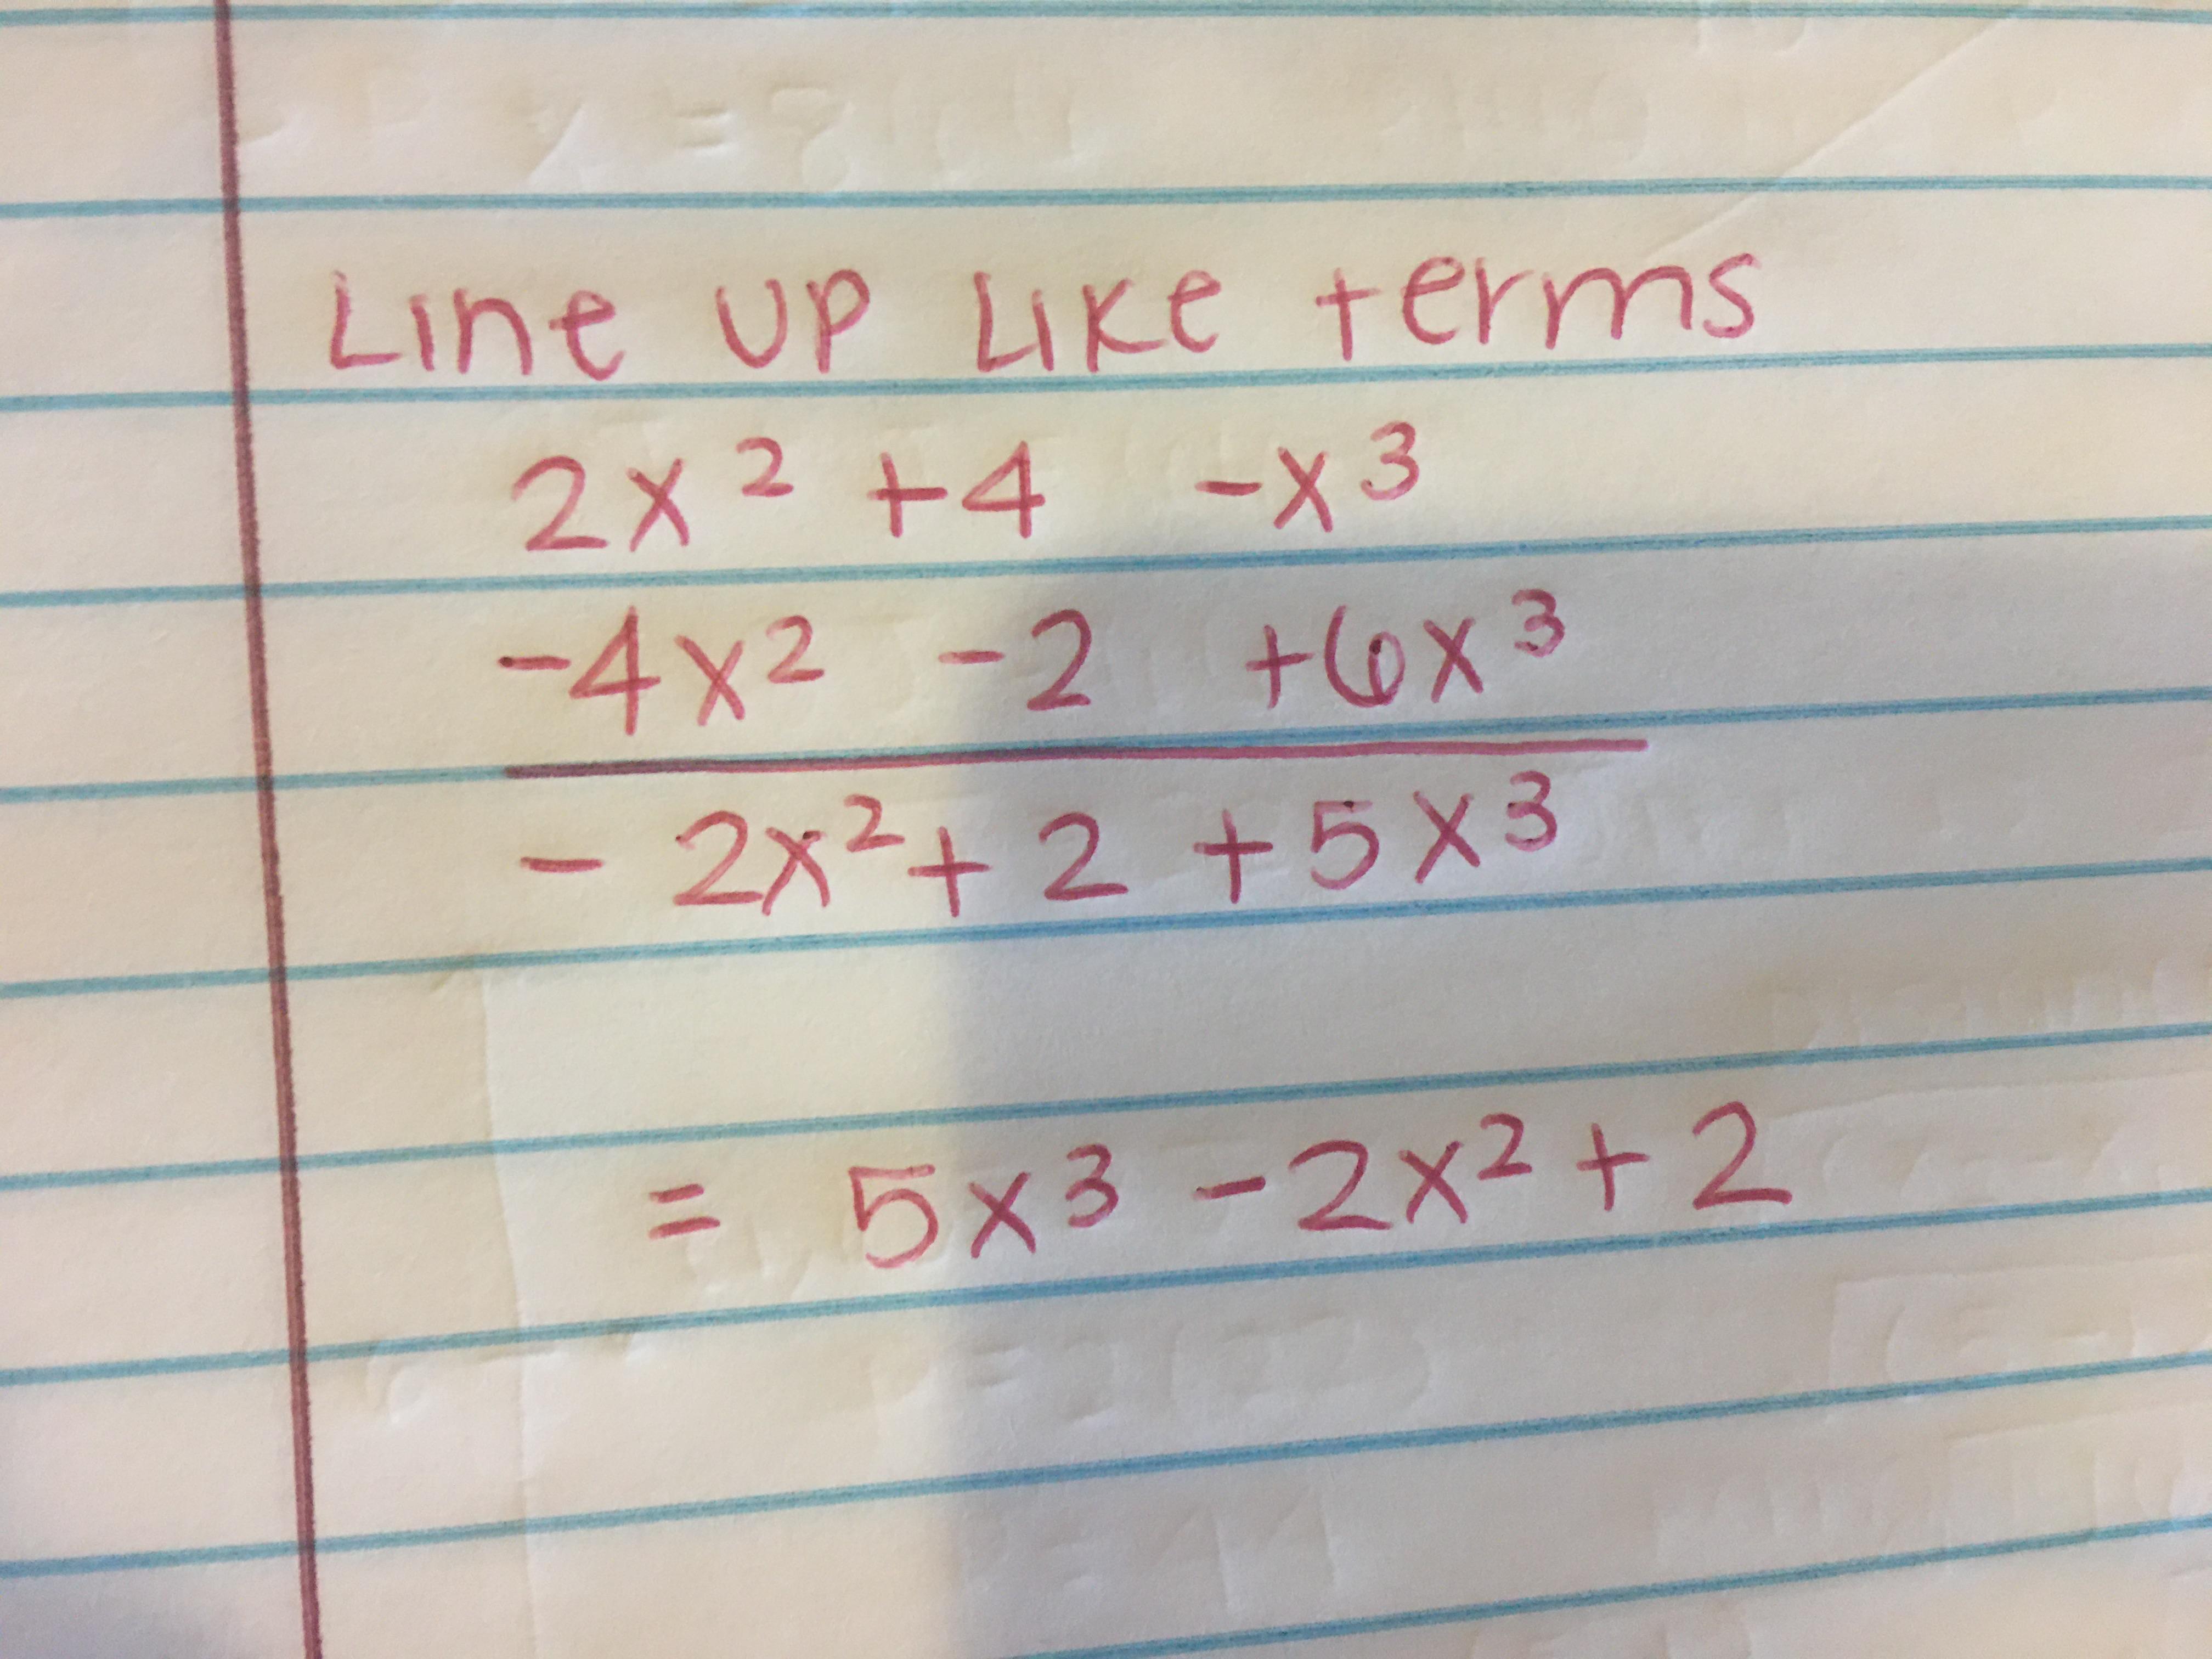 Line up Like terms
2x² +4 -x³
-4x² -2 +6x³
- 2x² + 2 + 5x³
= 5x³ - 2x² + 2